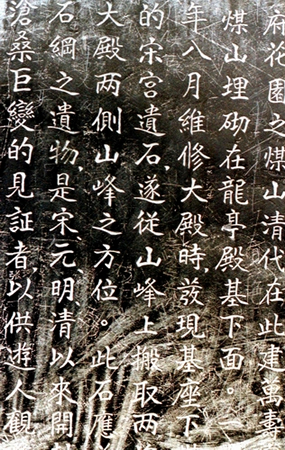 府花園之煤山清代在此建萬壽
煤山埋砌在龍亭殿基下面。一
年八月維修大殿時,發現基座下
的宋宮遺石,遂從山峰上搬取两
大殿两側山峰之方位。此石應
石綱之遺物,是宋、元、明、清以來開
滄桑巨變的見証者,以供遊人觀